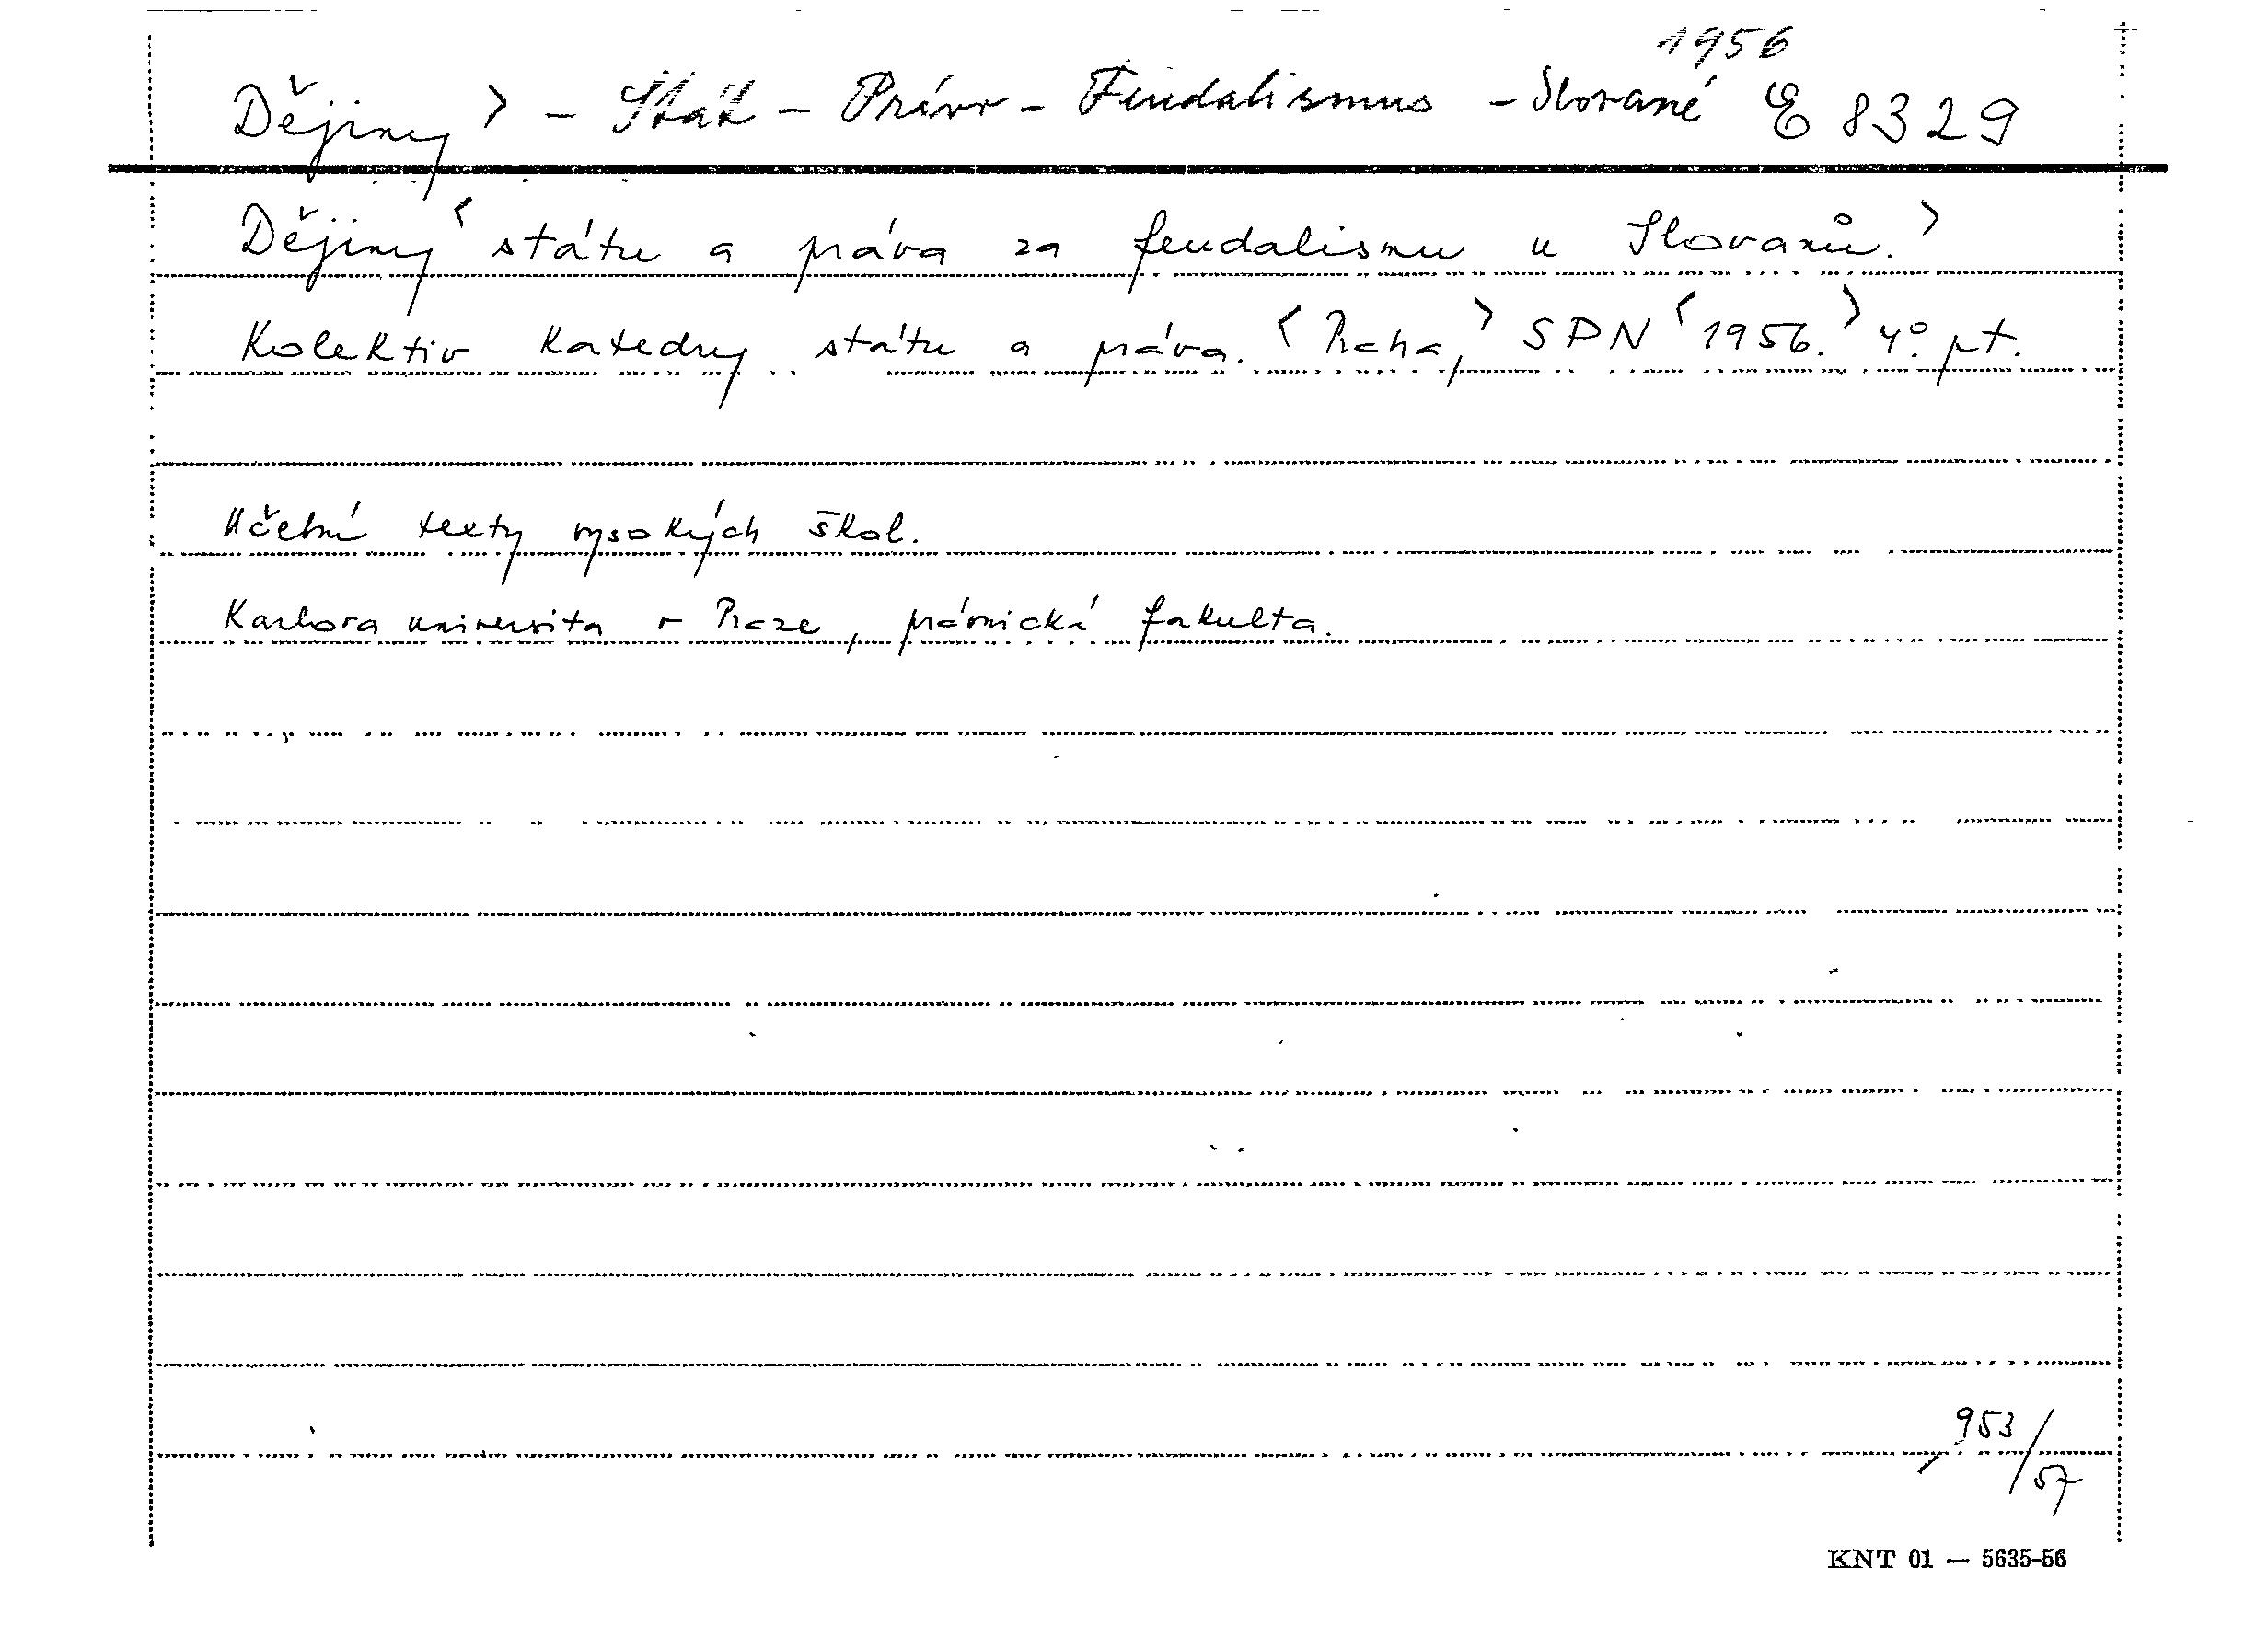 1956
Dějiny > - Stát - Právo - Feudalismus - Slované E 8329
Dějiny < státu a práva za feudalismu u Slovanů. >
Kolektiv Katedry státu a práva. < Praha, > SPN < 1956. > 4°. pt.
Učební texty vysokých škol.
Karlova universita v Praze, právnická fakulta.
953/57
KNT 01 — 5635-56